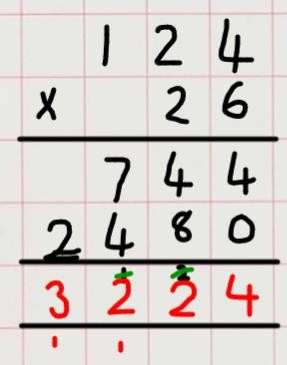 1 2 4
x 2 6
7 4 4
2 4 8 0
3 2 2 4
1 1